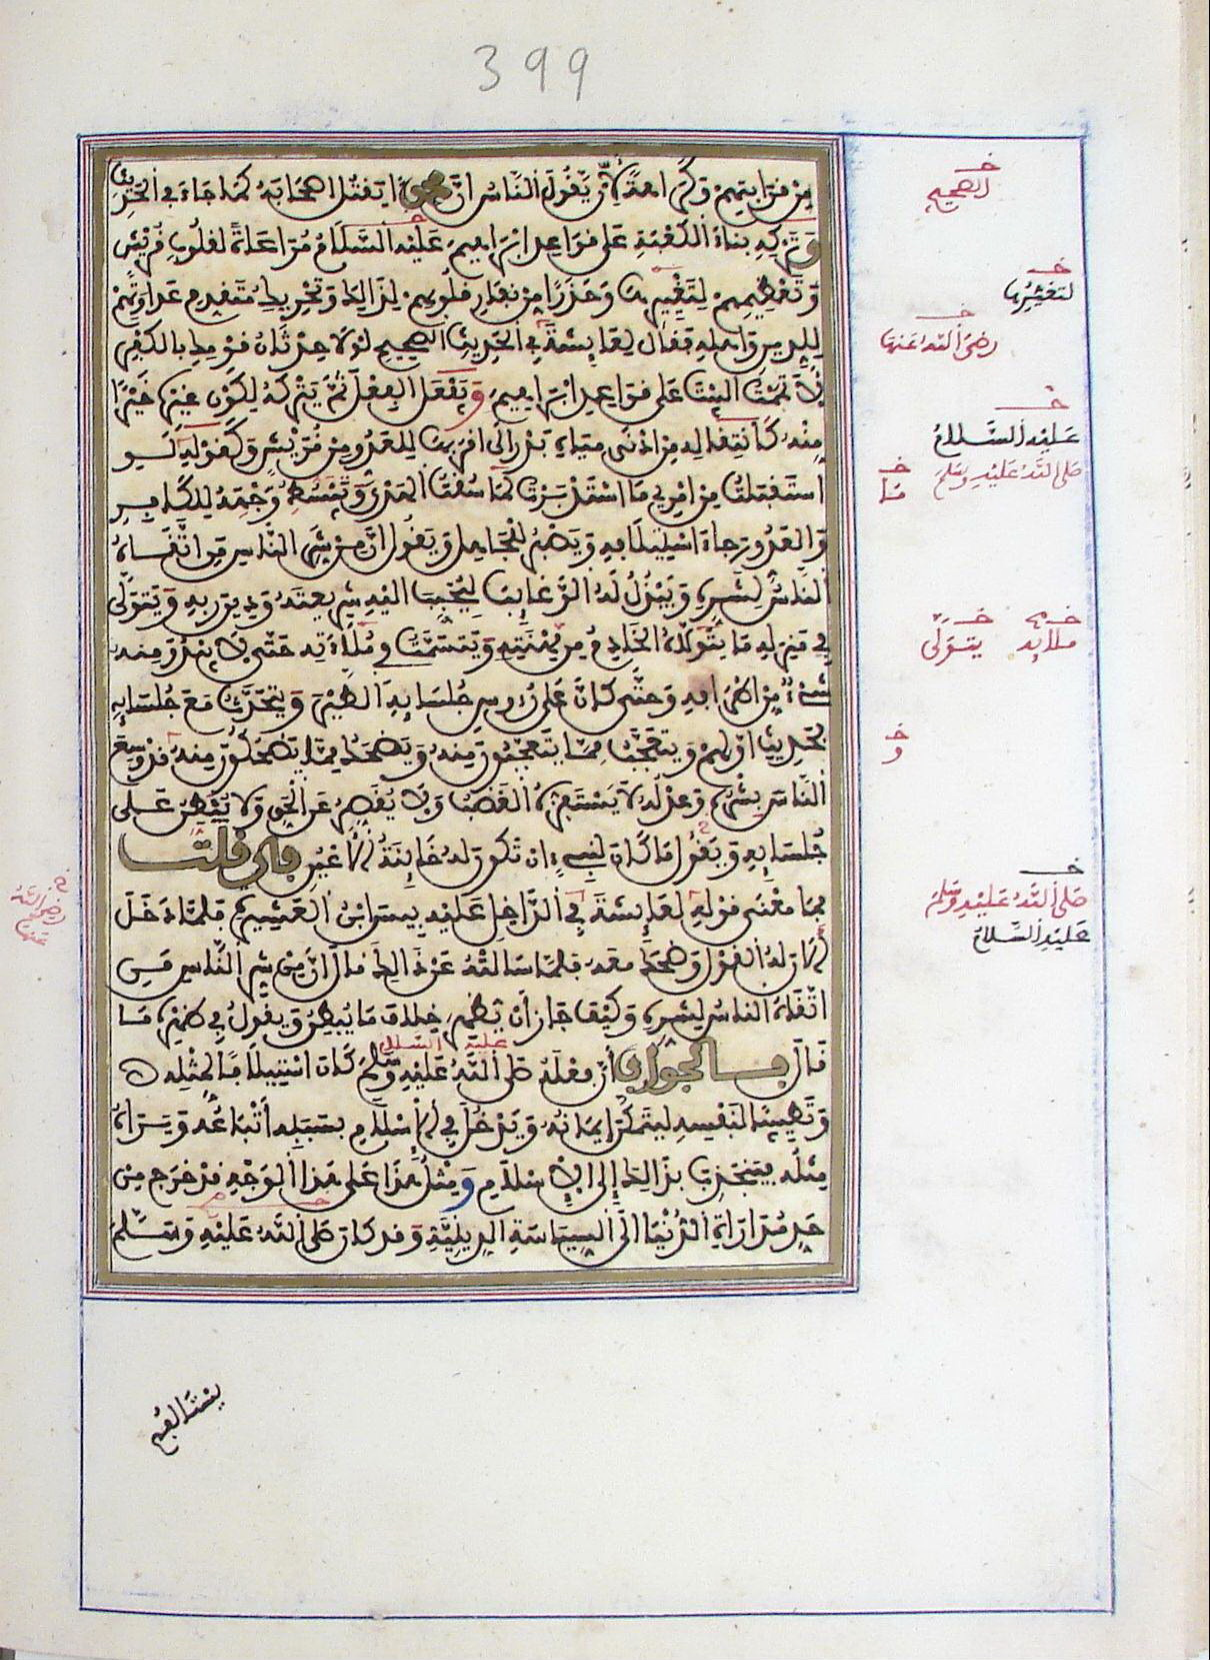 399
مِنْ قَرَابَتِهِمْ وَكَرَاهَةً لِأَنْ يَقُولَ النَّاسُ اِنَّ مُحَمَّدًا يَقْتُلُ اصْحَابَهُ كَمَا جَاءَ فِي الْحَدِيثِ
وَتَرْكِهِ بِنَاءَ الْكَعْبَةِ عَلَى قَوَاعِدِ ابْرَاهِيمَ عَلَيْهِ السَّلَامُ مُرَاعَاةً لِقُلُوبِ قُرَيْشٍ
وَتَعْظِيمِهِمْ لِتَغْيِيرِهَا وَحَذَرًا مِنْ نِفَارِ قُلُوبِهِمْ لِذَالِكَ وَتَحْرِيكِ مُتَقَدِّمِ عَدَاوَتِهِمْ
لِلدِّينِ وَاَهْلِهِ فَقَالَ لِعَائِشَةَ فِي الْحَدِيثِ الصَّحِيحِ لَوْلَا حِدْثَانُ قَوْمِكِ بِالْكُفْرِ
لَأَتْمَمْتُ الْبَيْتَ عَلَى قَوَاعِدِ ابْرَاهِيمَ وَيَفْعَلُ الْفِعْلَ ثُمَّ يَتْرُكُهُ لِكَوْنِ غَيْرِهِ خَيْرًا
مِنْهُ كَانْتِقَالِهِ مِنْ اَدْنَى مِيَاهِ بَدْرٍ اِلَى اَقْرَبِهَا لِلْعَدُوِّ مِنْ قُرَيْشٍ وَكَقَوْلِهِ لَوِ
اسْتَقْبَلْتُ مِنْ اَمْرِي مَا اسْتَدْبَرْتُ لَمَا سُقْتُ الْهَدْيَ وَيَبْسُطُ وَجْهَهُ لِلْكَافِرِ
وَالْعَدُوِّ رَجَاءَ اسْتِئْلَافِهِ وَيَصْبِرُ لِلْجَاهِلِ وَيَقُولُ اِنَّ مِنْ شَرِّ النَّاسِ مَنِ اتَّقَاهُ
النَّاسُ لِشَرِّهِ وَيَبْذُلُ لَهُ الرَّغَائِبَ لِيُحَبِّبَ اِلَيْهِ شَرِيعَتَهُ وَدِينَ رَبِّهِ وَيَتَوَلَّى
فِي مَنْزِلِهِ مَا يَتَوَلَّاهُ الْخَادِمُ مِنْ مِهْنَتِهِ وَيَتَسَمَّتُ فِي مُلَاءَتِهِ حَتَّى لَا يَبْدُوَ مِنْهُ
شَيْءٌ مِنْ اَطْرَافِهِ وَحَتَّى كَأَنَّ عَلَى رُءُوسِ جُلَسَائِهِ الطَّيْرَ وَيَتَحَدَّثُ مَعَ جُلَسَائِهِ
بِحَدِيثِ اَوَّلِهِمْ وَيَتَعَجَّبُ مِمَّا يَتَعَجَّبُونَ مِنْهُ وَيَضْحَكُ مِمَّا يَضْحَكُونَ مِنْهُ قَدْ وَسِعَ
النَّاسَ بِشْرُهُ وَعَدْلُهُ لَا يَسْتَفِزُّهُ الْغَضَبُ وَلَا يُقَصِّرُ عَنِ الْحَقِّ وَلَا يُبْطِنُ عَلَى
جُلَسَائِهِ وَيَقُولُ مَا كَانَ لِنَبِيٍّ اَنْ تَكُونَ لَهُ خَائِنَةُ الْاَعْيُنِ فَإِنْ قُلْتَ
فَمَا مَعْنَى قَوْلِهِ لِعَائِشَةَ فِي الدَّاخِلِ عَلَيْهِ بِيسَ ابْنُ الْعَشِيرَةِ فَلَمَّا دَخَلَ
اَلَانَ لَهُ الْقَوْلَ وَضَحِكَ مَعَهُ فَلَمَّا سَاَلَتْهُ عَنْ ذَالِكَ قَالَ اِنَّ مِنْ شَرِّ النَّاسِ مَنِ
اتَّقَاهُ النَّاسُ لِشَرِّهِ وَكَيْفَ جَازَ اَنْ يُظْهِرَ خِلَافَ مَا يُبْطِنُ وَيَقُولُ فِي ظَهْرِهِ مَا
قَالَ فَالْجَوَابُ أَنَّ فِعْلَهُ صَلَّى اللَّهُ عَلَيْهِ وَسَلَّمَ كَانَ اسْتِيلَافًا لِمِثْلِهِ
وَتَطْيِيبًا لِنَفْسِهِ لِيَتَمَكَّنَ اِيمَانُهُ وَيَدْخُلَ فِي الْاِسْلَامِ بِسَبَبِهِ أَتْبَاعُهُ وَيَرَاهُ
مِثْلُهُ فَيَنْجَذِبَ بِذَالِكَ إِلَى الْاِسْلَامِ وَمِثْلُ هَذَا عَلَى هَذَا الْوَجْهِ قَدْ خَرَجَ مِنْ
حَدِّ مُدَارَاةِ الدُّنْيَا اِلَى السِّيَاسَةِ الدِّينِيَّةِ وَقَدْ كَانَ صَلَّى اللَّهُ عَلَيْهِ وَسَلَّمَ
عليه السلام
خ
الصحيح
خ
لتغييرها
خ
رضي الله عنها
خ
عَلَيْهِ السَّلَامُ
صَلَّى اللَّهُ عَلَيْهِ وَسَلَّمَ خ
خ خ
يتولى
خ
و
خ
صَلَّى اللَّهُ عَلَيْهِ وَسَلَّمَ
عَلَيْهِ السَّلَامُ
خ
رضي الله
عنها